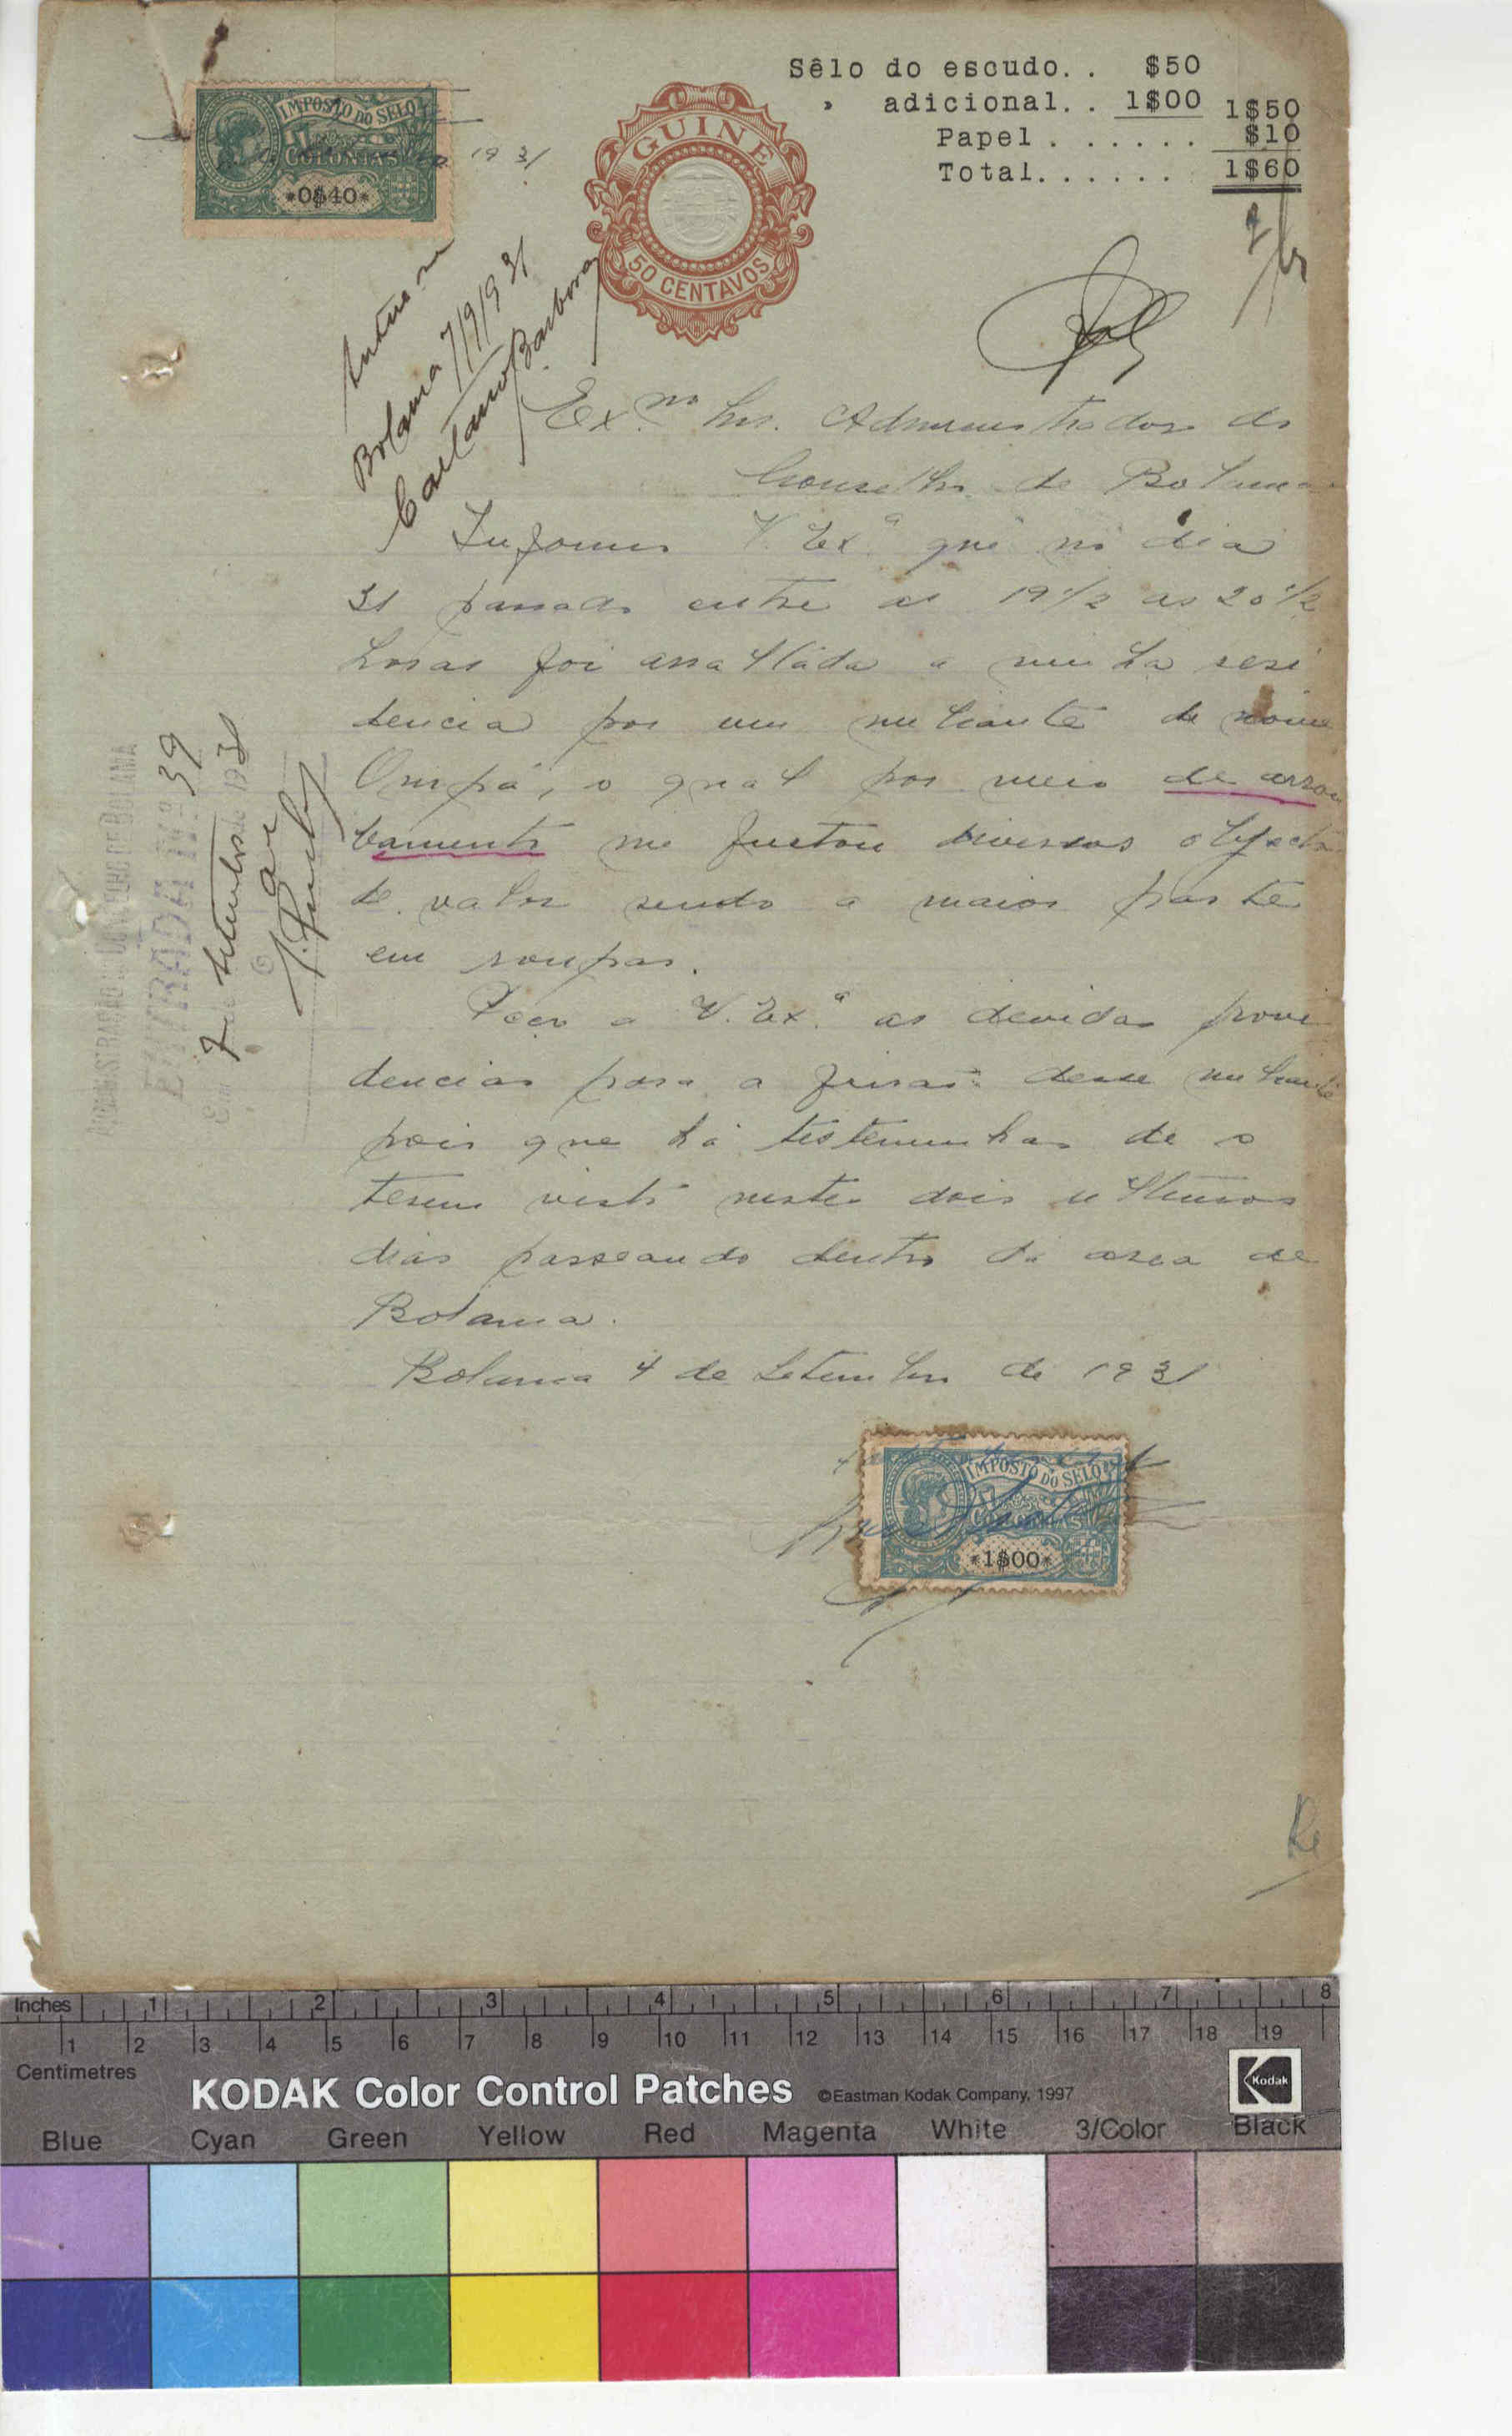 Sêlo do escudo.. $50
» adicional.. 1$00 1$50
Papel...... $10
Total...... 1$60
IMPOSTO DO SELO
COLONIAS
*0$40*
1931
GUINE
50 CENTAVOS
Autue-se
Bolama 7/9/931
Caetano Barbosa
Ex.mo Snr. Administrador do
Conselho de Bolama
Informo V. Ex.a que no dia
31 passado entre as 19 1/2 as 20 1/2
horas foi assaltáda a minha resi
dencia por um meliante de nome
Ompá, o qual por meio de arrom
bamento me furtou diversos objectos
de valor sendo a maior parte
em roupas.
Peço a V. Ex.a as devidas provi
dencias para a prisão desse meliante
pois que há testemunhas de o
terem visto nestes dois ultimos
dias passeando dentro da area de
Bolama.
Bolama 4 de Setembro de 1931
IMPOSTO DO SELO
COLONIAS
*1$00*
ADMINISTRAÇÃO DO CONCELHO DE BOLAMA
ENTRADA N.º 39
Em 7 de Setembro de 1931
O
Inches 1 2 3 4 5 6 7 8
1 2 3 4 5 6 7 8 9 10 11 12 13 14 15 16 17 18 19
Centimetres
KODAK Color Control Patches ©Eastman Kodak Company, 1997 Kodak
Blue Cyan Green Yellow Red Magenta White 3/Color Black